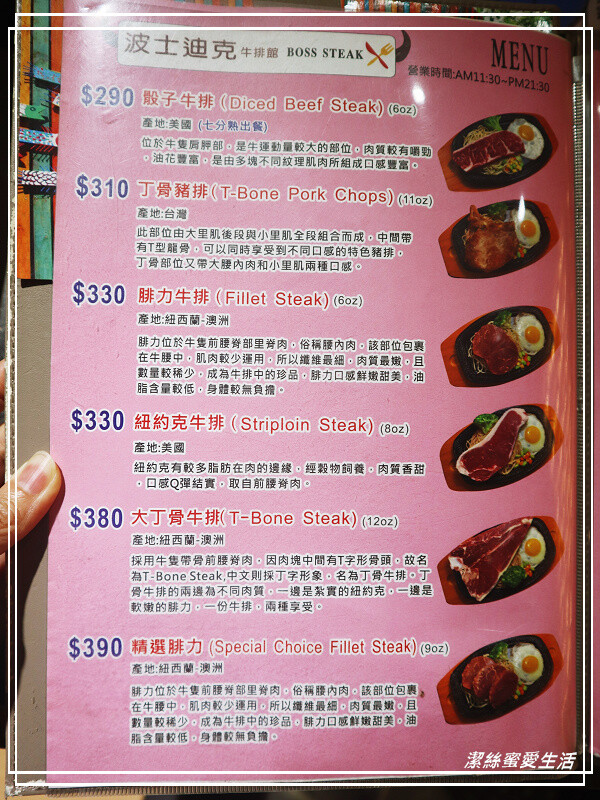 波士迪克 牛排館 BOSS STEAK
MENU
營業時間:AM11:30~PM21:30
$290 骰子牛排(Diced Beef Steak)(6oz)
產地:美國 (七分熟出餐)
位於牛隻肩胛部，是牛運動量較大的部位，肉質較有嚼勁
，油花豐富，是由多塊不同紋理肌肉所組成口感豐富。
$310 丁骨豬排(T-Bone Pork Chops)(11oz)
產地:台灣
此部位由大里肌後段與小里肌全段組合而成，中間帶
有T型龍骨，可以同時享受到不同口感的特色豬排，
丁骨部位又帶大腰內肉和小里肌兩種口感。
$330 腓力牛排(Fillet Steak)(6oz)
產地:紐西蘭-澳洲
腓力位於牛隻前腰脊部里脊肉，俗稱腰內肉，該部位包裹
在牛腰中，肌肉較少運用，所以纖維最細，肉質最嫩，且
數量較稀少，成為牛排中的珍品，腓力口感鮮嫩甜美，油
脂含量較低，身體較無負擔。
$330 紐約克牛排(Striploin Steak)(8oz)
產地:美國
紐約克有較多脂肪在肉的邊緣，經穀物飼養，肉質香甜
，口感Q彈結實，取自前腰脊肉。
$380 大丁骨牛排(T-Bone Steak)(12oz)
產地:紐西蘭-澳洲
採用牛隻帶骨前腰脊肉，因肉塊中間有T字形骨頭，故名
為T-Bone Steak,中文則採丁字形象，名為丁骨牛排，丁
骨牛排的兩邊為不同肉質，一邊是紮實的紐約克，一邊是
軟嫩的腓力，一份牛排，兩種享受。
$390 精選腓力(Special Choice Fillet Steak)(9oz)
產地:紐西蘭-澳洲
腓力位於牛隻前腰脊部里脊肉，俗稱腰內肉，該部位包裹
在牛腰中，肌肉較少運用，所以纖維最細，肉質最嫩，且
數量較稀少，成為牛排中的珍品，腓力口感鮮嫩甜美，油
脂含量較低，身體較無負擔。
潔絲蜜愛生活